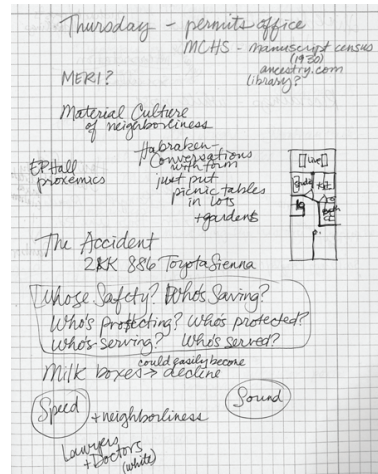 Thursday - permits office
MCHS - manuscript census
(1930)
ancestry.com
library?
MERI?
Material Culture
of neighborliness
Habraken-
Conversations
with form
EPHall
proxemics
just put
picnic tables
in lots
+gardens
live
Kit
The Accident
2KK 886 Toyota Sienna
Whose Safety? Who's Saving?
Who's Protecting? Who's protected?
Who's-serving? Who's served?
could easily become
Milk boxes → decline
Speed
+neighborliness
Sound
Lawyers
+Doctors
(white)